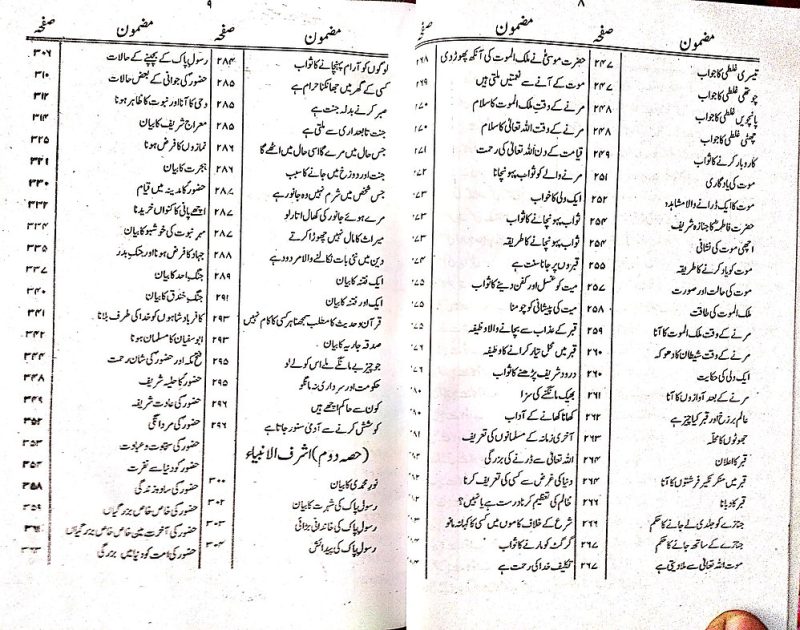 ۸
مضمون صفحہ
تیسری غلطی کا جواب ۲۴۷
چوتھی غلطی کا جواب ۲۴۷
پانچویں غلطی کا جواب ۲۴۸
چھٹی غلطی کا جواب ۲۴۸
کاروبار کرنے کا ثواب ۲۴۹
موت کی یادگاری ۲۵۱
موت کا ایک ڈرانے والا مشاہدہ ۲۵۲
حضرت فاطمہؓ کا جنازہ شریف ۲۵۴
اچھی موت کی نشانی ۲۵۴
موت کو یاد کرنے کا طریقہ ۲۵۵
موت کی حالت اور صورت ۲۵۷
ملک الموت کی طاقت ۲۵۸
مرنے کے وقت ملک الموت کا آنا ۲۵۹
مرنے کے وقت شیطان کا دھوکہ ۲۶۰
ایک ولی کی حکایت ۲۶۰
مرنے کے بعد آوازوں کا آنا ۲۶۱
عالم برزخ اور قبر کیا چیز ہے ۲۶۲
جھوٹوں کا محلہ ۲۶۳
قبر کا اعلان ۲۶۴
قبر میں منکر نکیر فرشتوں کا آنا ۲۶۴
قبر کا دبانا ۲۶۶
جنازے کو جلدی لے جانے کا حکم
جنازے کے ساتھ جانے کا حکم ۲۶۷
موت اللہ تعالیٰ سے ملا دیتی ہے ۲۶۷
مضمون صفحہ
حضرت موسیٰؑ نے ملک الموت کی آنکھ پھوڑ دی ۲۶۸
موت کے آنے سے نعمتیں ملتی ہیں ۲۶۹
مرنے کے وقت ملک الموت کا سلام ۲۷۰
مرنے کے وقت اللہ تعالیٰ کا سلام ۲۷۰
قیامت کے دن اللہ تعالیٰ کی رحمت ۲۷۱
مرنے والے کو ثواب پہونچانا
ایک ولی کا خواب
ثواب پہونچانے کا ثواب
ثواب پہونچانے کا طریقہ
قبروں پر جانا سنت ہے
میت کو غسل اور کفن دینے کا ثواب
میت کی پیشانی کو چومنا
قبر کے عذاب سے بچانے والا وظیفہ
قبر میں محل تیار کرانے کا وظیفہ
درود شریف پڑھنے کا ثواب
بھیک مانگنے کی سزا
کھانا کھانے کے آداب
آخری زمانہ کے مسلمانوں کی تعریف
اللہ تعالیٰ سے ڈرنے کی بزرگی
دنیا کی غرض سے کسی کی تعریف کرنا
ظالم کی تعظیم کرنا درست ہے یا نہیں؟
شرع کے خلاف کاموں میں کسی کا کہنا نہ مانو
گرگٹ کو مارنے کا ثواب
تکلیف خدا کی رحمت ہے
۹
مضمون صفحہ
لوگوں کو آرام پہنچانے کا ثواب ۲۸۴
کسی کے گھر میں جھانکنا حرام ہے ۲۸۵
صبر کرنے بدلہ جنت ہے ۲۸۵
جنت تابعداری سے ملتی ہے ۲۸۵
جس حال میں مرے گا اسی حال میں اٹھے گا ۲۸۶
جنت اور دوزخ میں جانے کا سبب ۲۸۶
جس شخص میں شرم نہیں وہ جانور ہے ۲۸۷
مرے ہوئے جانور کی کھال اتار لو ۲۸۷
میراث کا مال نہیں چھوڑا کرتے ۲۸۷
دین میں نئی بات نکالنے والا مردود ہے ۲۸۸
ایک فتنہ کا بیان ۲۸۹
ایک اور فتنہ کا بیان ۲۹۱
قرآن و حدیث کا مطلب سمجھنا ہر کسی کا کام نہیں ۲۹۳
صدقہ جاریہ کا بیان ۲۹۳
جو چیز بے مانگے ملے اس کو لے لو ۲۹۵
حکومت اور سرداری نہ مانگو ۲۹۵
کون سے حاکم اچھے ہیں ۲۹۶
کوشش کرنے سے آدمی سنور جاتا ہے ۲۹۶
(حصہ دوم) اشرف الانبیاء
نور محمدی کا بیان ۳۰۰
رسول پاک کی شہرت کا بیان ۳۰۲
رسول پاک کی خاندانی بڑائی ۳۰۳
رسول پاک کی پیدائش ۳۰۴
مضمون صفحہ
رسول پاک کے بچپنے کے حالات ۳۰۶
حضور کی جوانی کے بعض حالات ۳۱۰
وحی کا آنا اور نبوت کا ظاہر ہونا ۳۱۲
معراج شریف کا بیان ۳۱۴
نمازوں کا فرض ہونا ۳۲۵
ہجرت کا بیان ۳۲۱
حضور کا مدینہ میں قیام ۳۳۰
اچھے پانی کا کنواں خریدنا ۳۳۲
مہر نبوت کی خوشبو کا بیان ۳۳۴
جہاد کا فرض ہونا اور جنگ بدر ۳۳۵
جنگ احد کا بیان ۳۳۷
جنگ خندق کا بیان ۳۴۰
کافر بادشاہوں کو خدا کی طرف بلانا ۳۴۱
ابوسفیان کا مسلمان ہونا ۳۴۲
فتح مکہ اور حضور کی شان رحمت ۳۴۴
حضور کا حلیہ شریف ۳۴۸
حضور کی عادت شریفہ ۳۴۹
حضور کی مردانگی ۳۵۲
حضور کی سخاوت و عبادت ۳۵۳
حضور کو دنیا سے نفرت ۳۵۴
حضور کی سادہ زندگی ۳۵۸
حضور کی خاص خاص بزرگیاں ۳۵۹
حضور کی آخرت میں خاص خاص بزرگیاں ۳۶۱
حضور کی امت کو دنیا میں بزرگی ۳۶۳